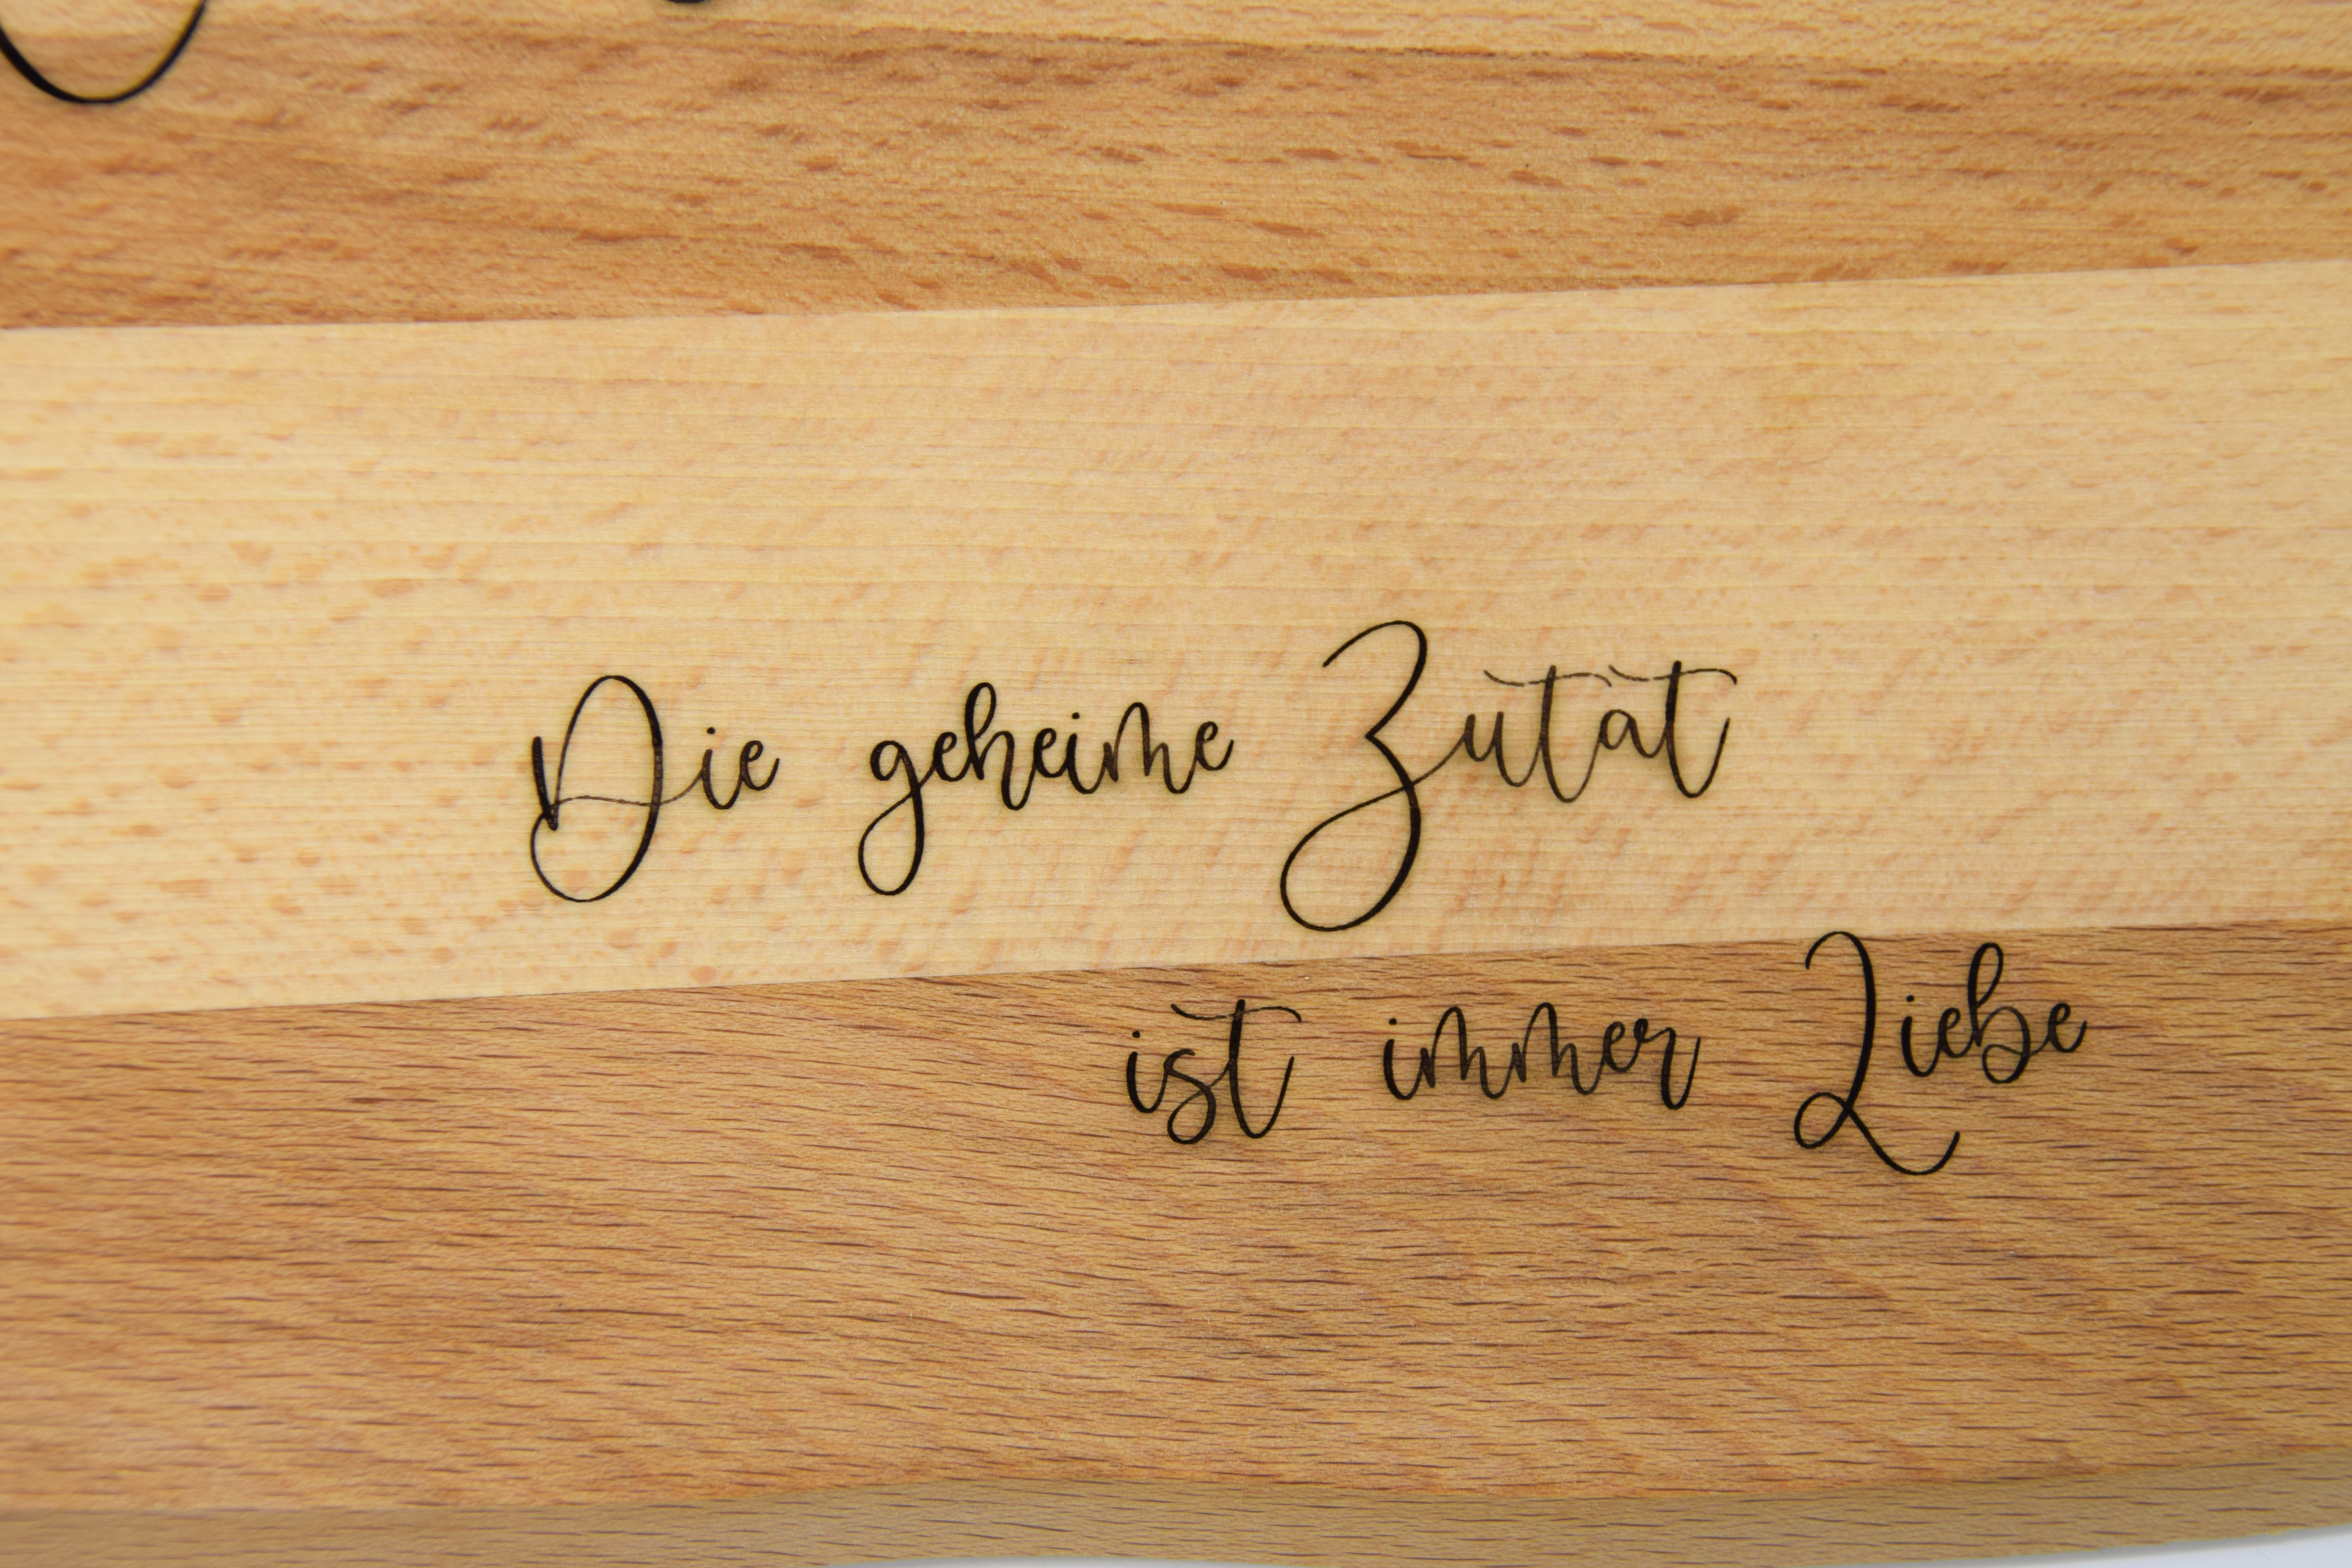 Die geheime Zutat
ist immer Liebe